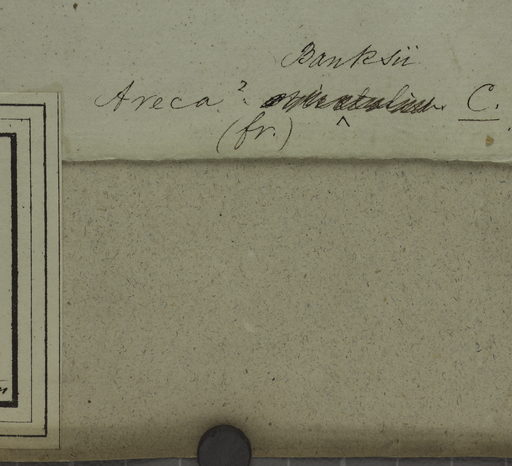 Banksii
Areca? C.
(fr.)